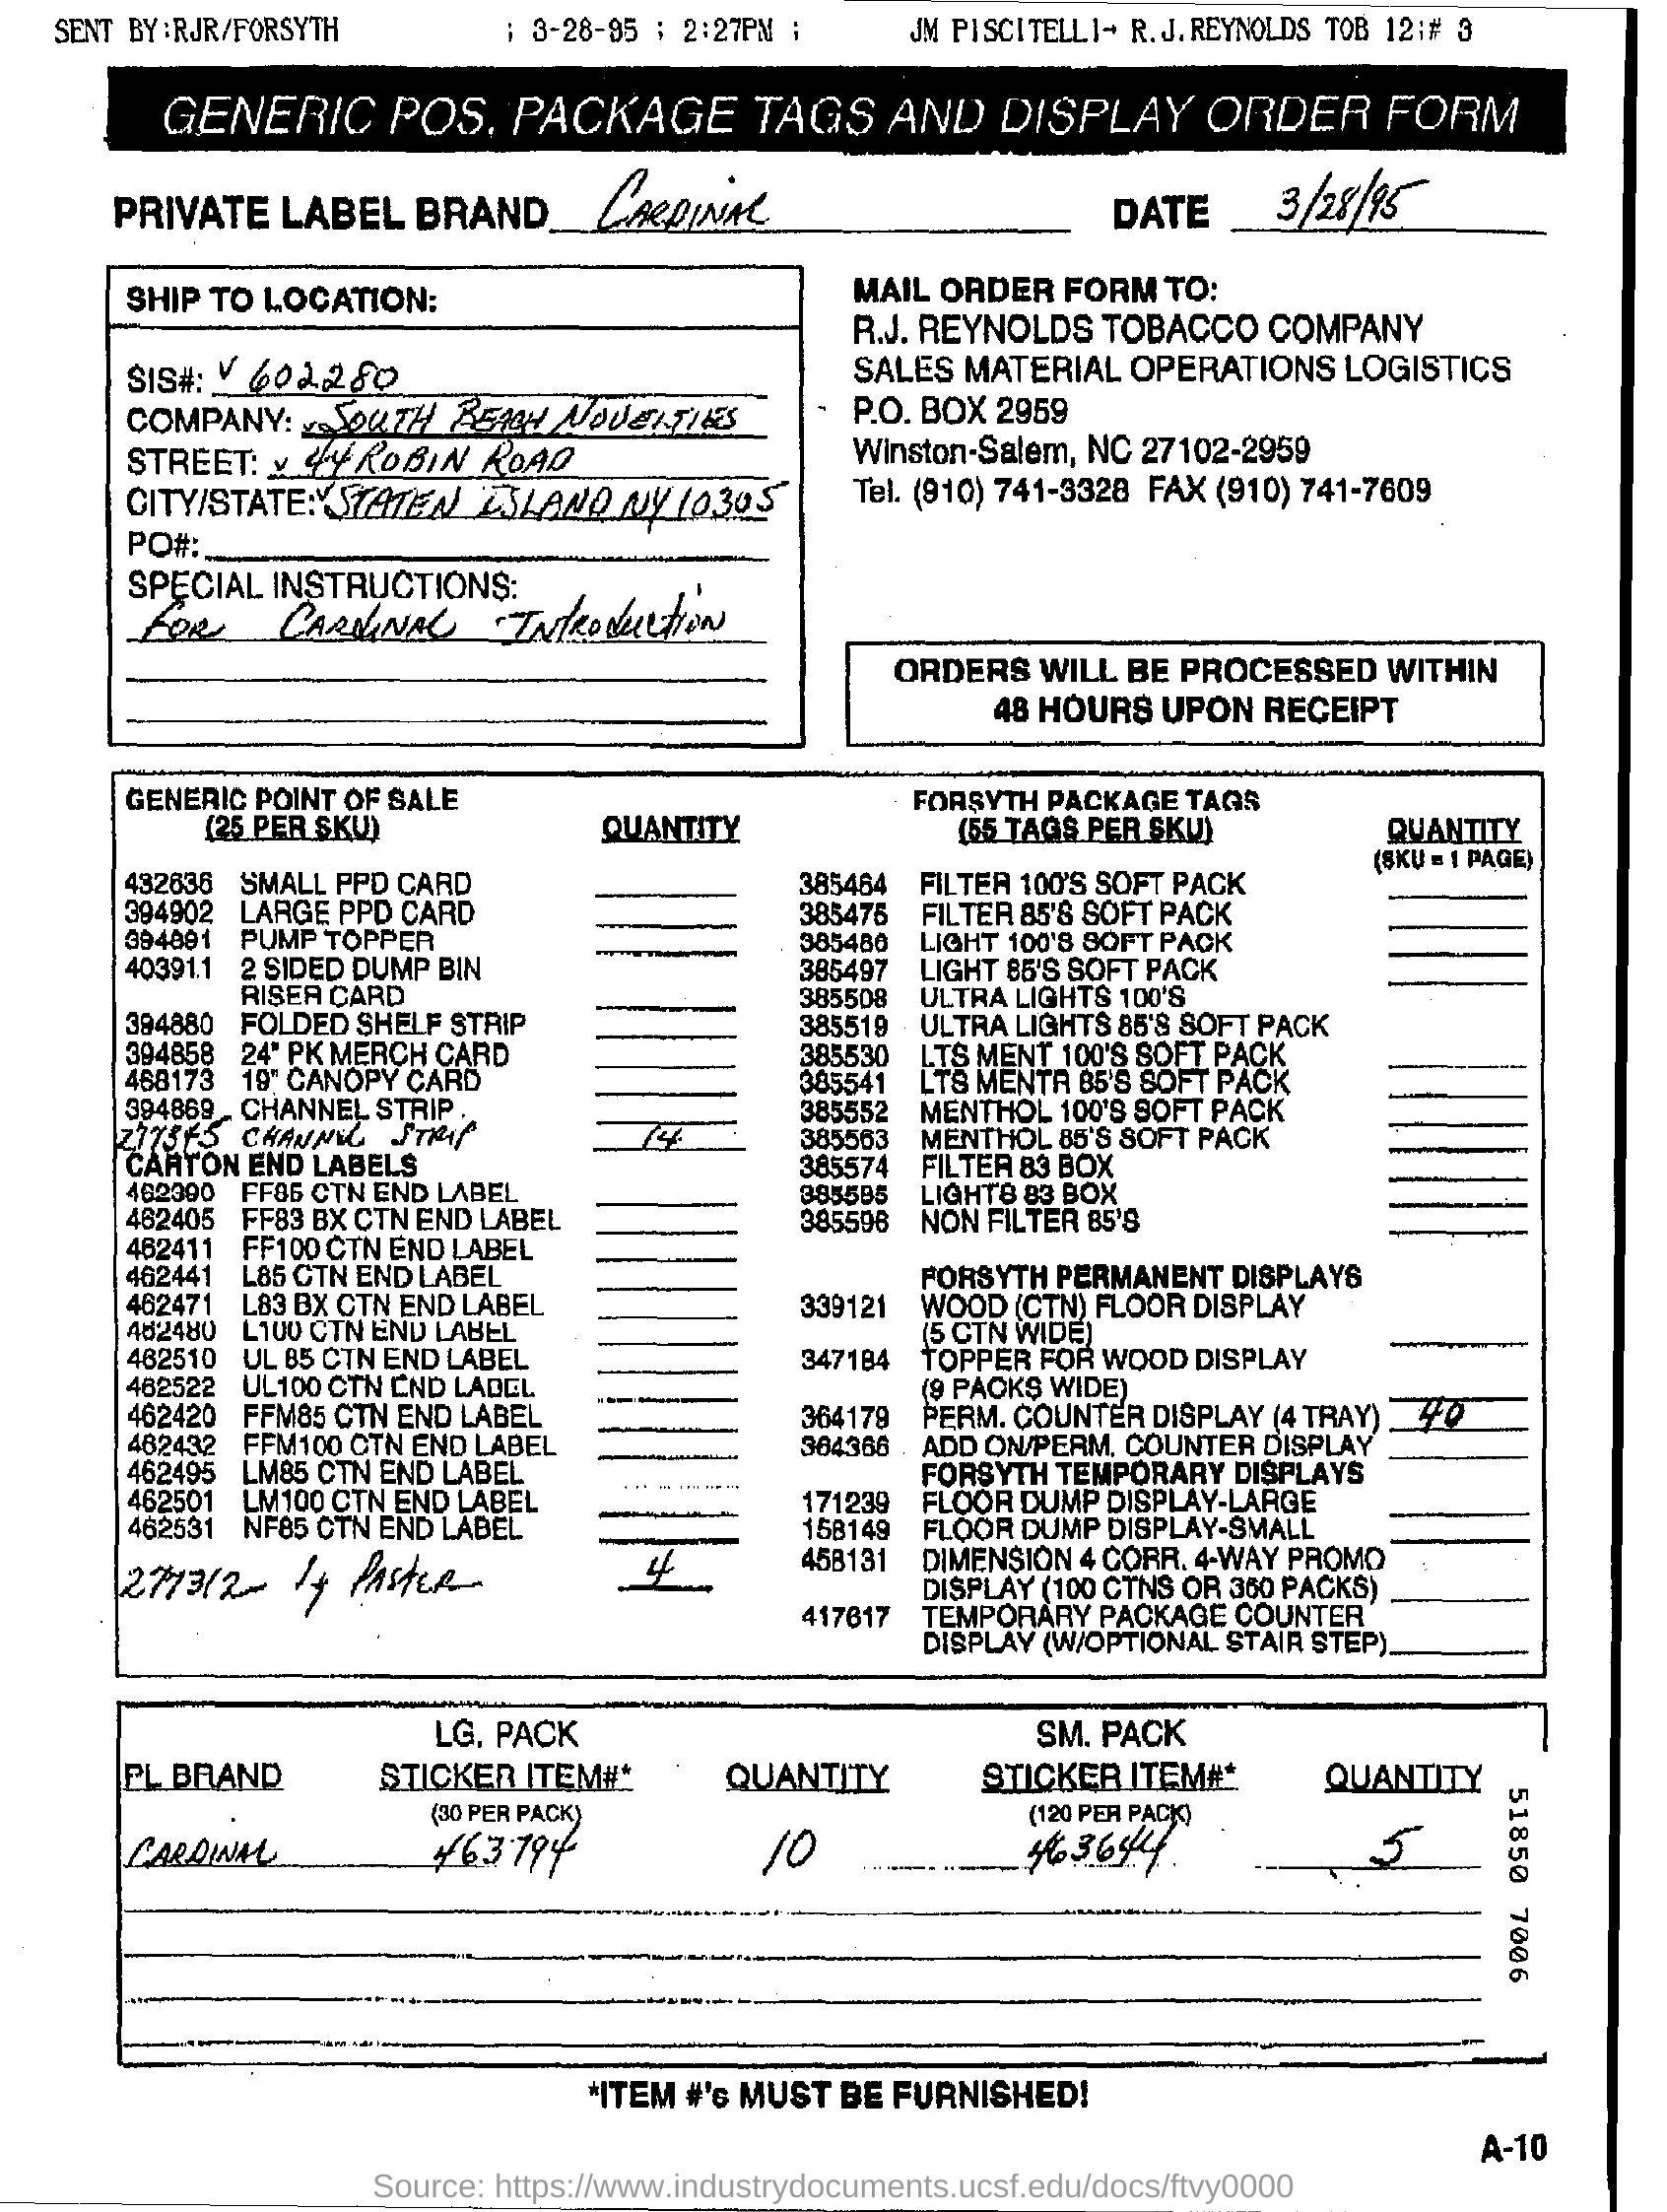 SENT BY:RJR/FORSYTH ; 3-28-95 ; 2:27PM ; JM PISCITELLI→ R.J.REYNOLDS TOB 12;# 3
GENERIC POS, PACKAGE TAGS AND DISPLAY ORDER FORM
PRIVATE LABEL BRAND CARDINAL DATE 3/28/95
SHIP TO LOCATION:
SIS#: 602280
COMPANY: SOUTH BEACH NOVELTIES
STREET: 44 ROBIN ROAD
CITY/STATE: STATEN ISLAND NY 10305
PO#:
SPECIAL INSTRUCTIONS:
FOR CARDINAL INTRODUCTION
MAIL ORDER FORM TO:
R.J. REYNOLDS TOBACCO COMPANY
SALES MATERIAL OPERATIONS LOGISTICS
P.O. BOX 2959
Winston-Salem, NC 27102-2959
Tel. (910) 741-3328 FAX (910) 741-7609
ORDERS WILL BE PROCESSED WITHIN
48 HOURS UPON RECEIPT
GENERIC POINT OF SALE
(25 PER SKU) QUANTITY
432636 SMALL PPD CARD
394902 LARGE PPD CARD
394891 PUMP TOPPER
403911 2 SIDED DUMP BIN
RISER CARD
394880 FOLDED SHELF STRIP
394858 24" PK MERCH CARD
468173 19" CANOPY CARD
394869 CHANNEL STRIP
277345 CHANNEL STRIP 14
CARTON END LABELS
462390 FF85 CTN END LABEL
462405 FF83 BX CTN END LABEL
462411 FF100 CTN END LABEL
462441 L85 CTN END LABEL
462471 L83 BX CTN END LABEL
462480 L100 CTN END LABEL
462510 UL 85 CTN END LABEL
462522 UL100 CTN END LABEL
462420 FFM85 CTN END LABEL
462432 FFM100 CTN END LABEL
462495 LM85 CTN END LABEL
462501 LM100 CTN END LABEL
462531 NF85 CTN END LABEL
277312 lg PASTER 4
FORSYTH PACKAGE TAGS
(55 TAGS PER SKU) QUANTITY
(SKU = 1 PAGE)
385464 FILTER 100'S SOFT PACK
385475 FILTER 85'S SOFT PACK
385486 LIGHT 100'S SOFT PACK
385497 LIGHT 85'S SOFT PACK
385508 ULTRA LIGHTS 100'S
385519 ULTRA LIGHTS 85'S SOFT PACK
385530 LTS MENT 100'S SOFT PACK
385541 LTS MENTR 85'S SOFT PACK
385552 MENTHOL 100'S SOFT PACK
385563 MENTHOL 85'S SOFT PACK
385574 FILTER 83 BOX
385585 LIGHTS 83 BOX
385596 NON FILTER 85'S
FORSYTH PERMANENT DISPLAYS
339121 WOOD (CTN) FLOOR DISPLAY
(5 CTN WIDE)
347184 TOPPER FOR WOOD DISPLAY
(9 PACKS WIDE)
364179 PERM. COUNTER DISPLAY (4 TRAY) 40
364366 ADD ON/PERM. COUNTER DISPLAY
FORSYTH TEMPORARY DISPLAYS
171239 FLOOR DUMP DISPLAY-LARGE
158149 FLOOR DUMP DISPLAY-SMALL
458131 DIMENSION 4 CORR. 4-WAY PROMO
DISPLAY (100 CTNS OR 360 PACKS)
417617 TEMPORARY PACKAGE COUNTER
DISPLAY (W/OPTIONAL STAIR STEP)
LG. PACK SM. PACK
PL BRAND STICKER ITEM#* QUANTITY STICKER ITEM#* QUANTITY
(30 PER PACK) (120 PER PACK)
CARDINAL 463794 10 463644 5
51850 7006
*ITEM #'s MUST BE FURNISHED!
A-10
Source: https://www.industrydocuments.ucsf.edu/docs/ftvy0000